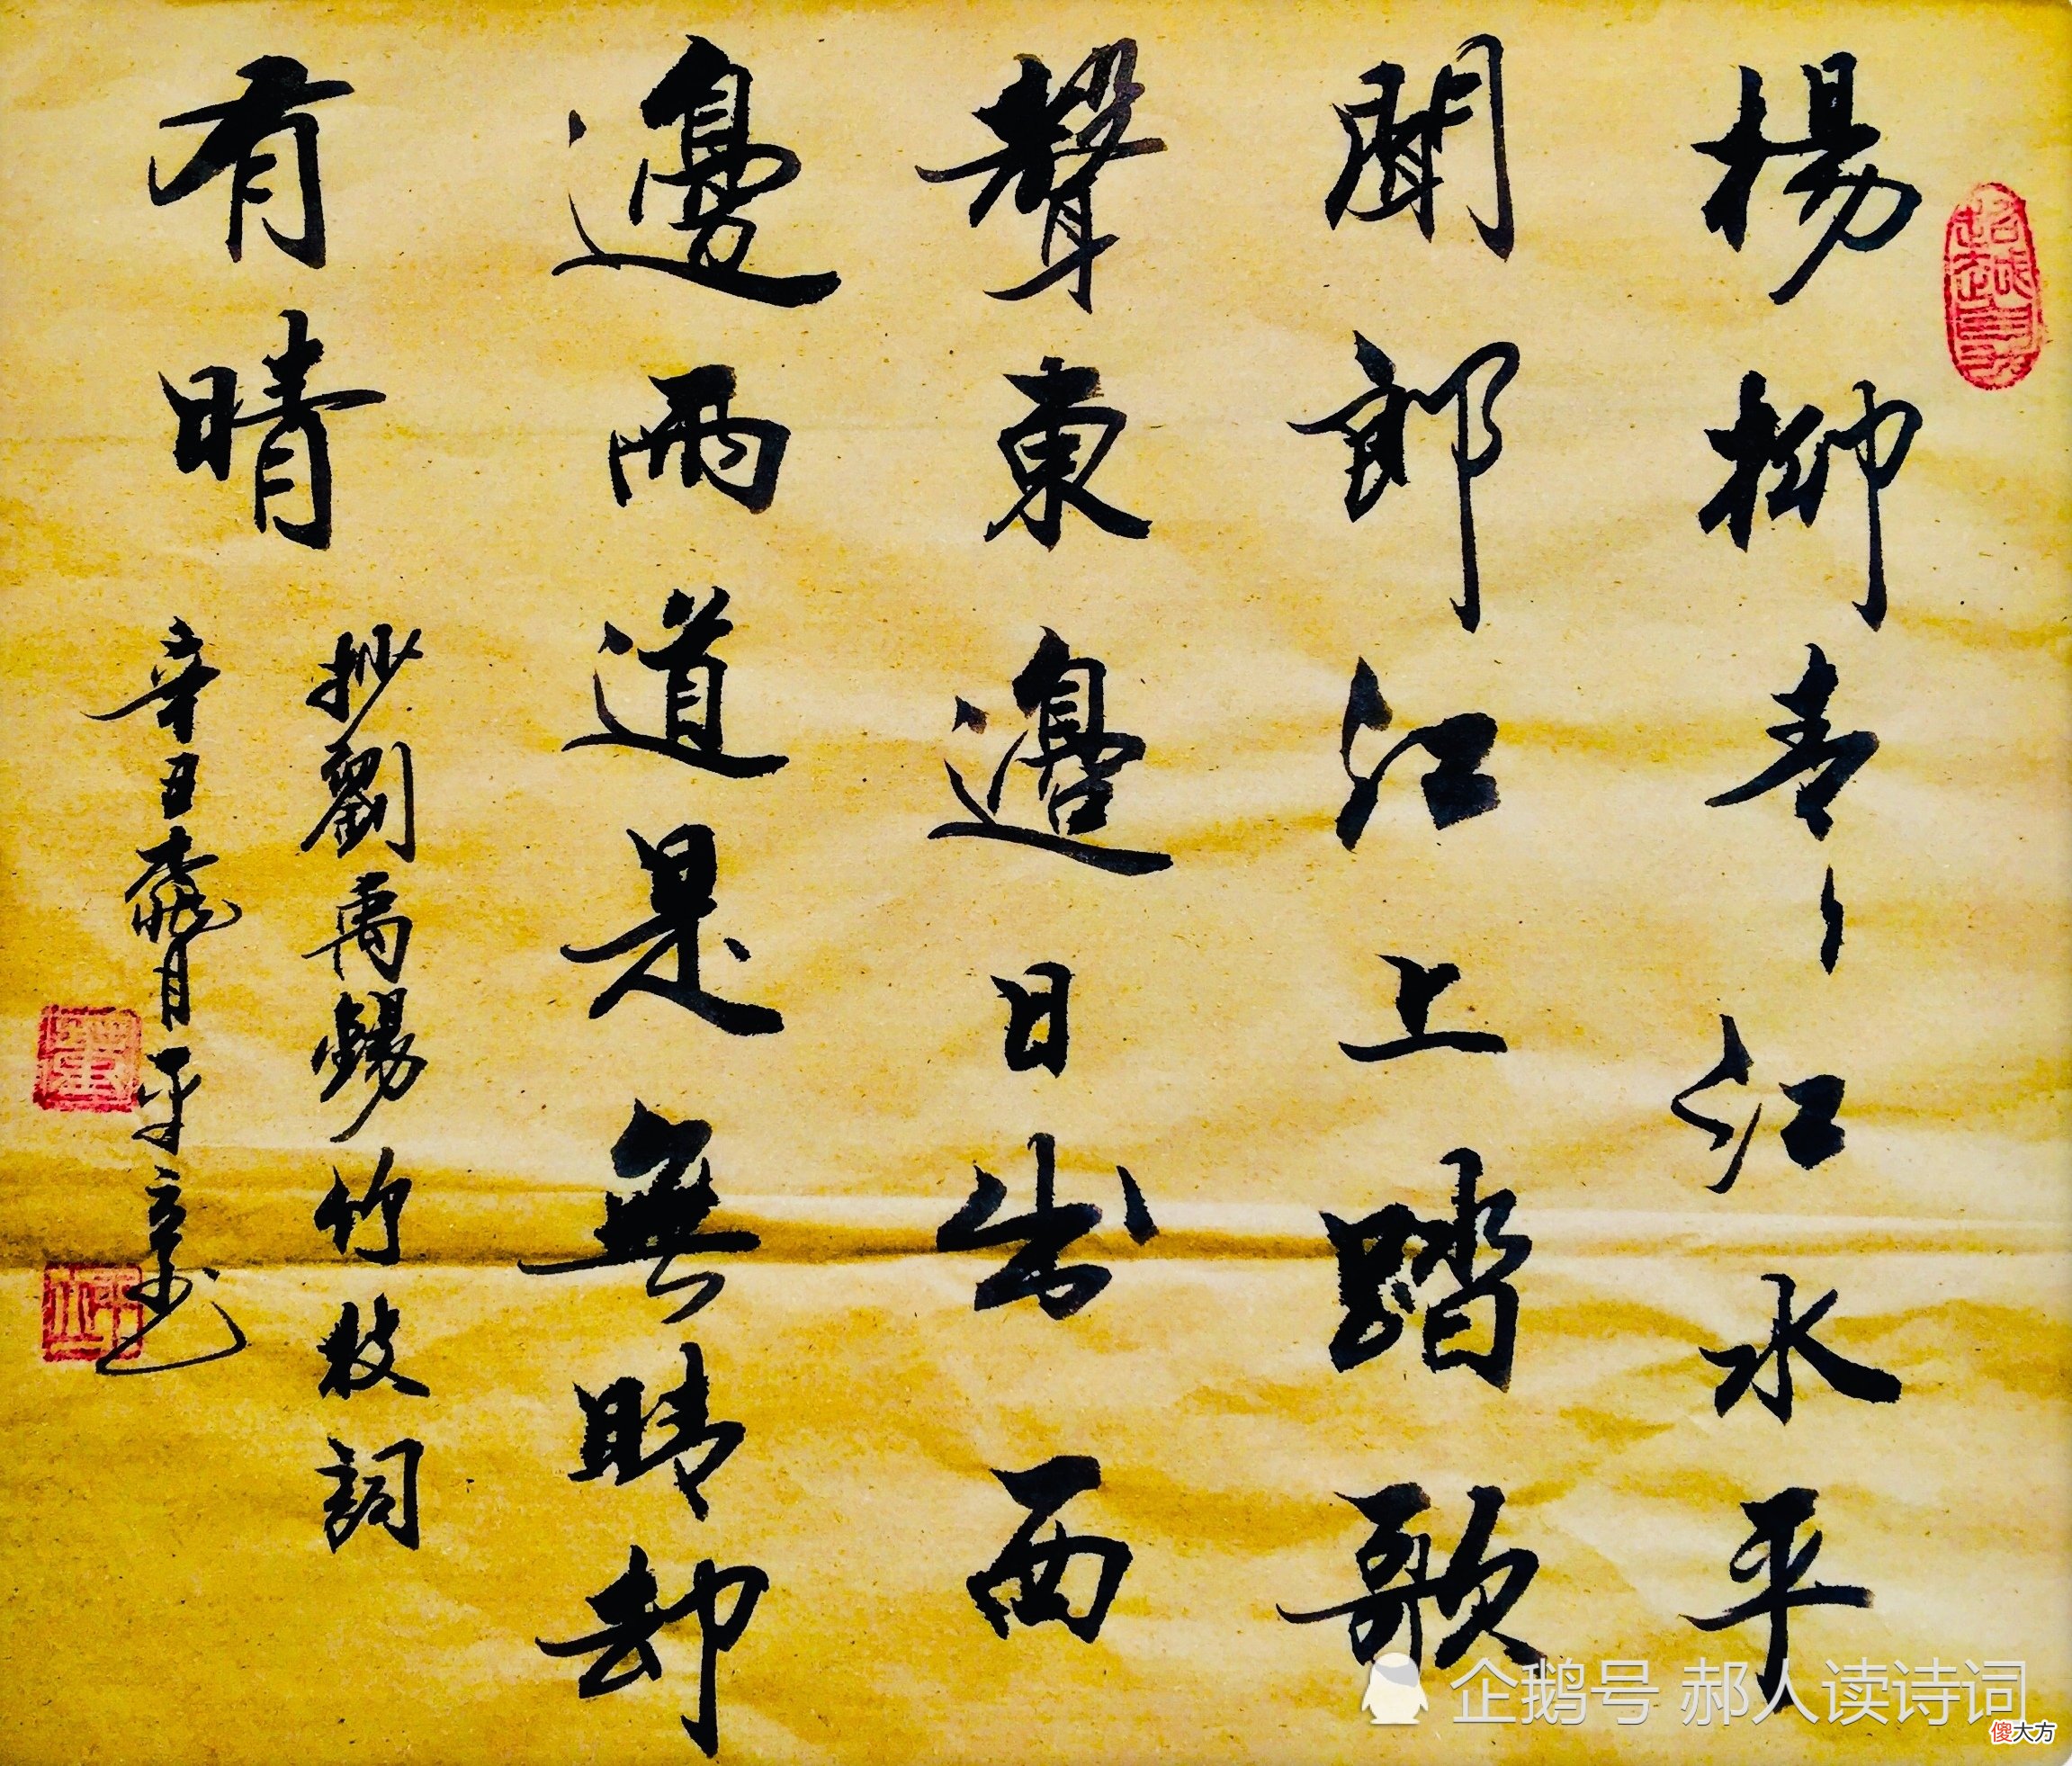 楊柳青々江水平
聞郎江上踏歌
聲東邊日出西
邊雨道是無晴却
有晴
抄劉禹錫竹枝詞
辛丑桃月平立書
企鹅号 郝人读诗词
傻大方